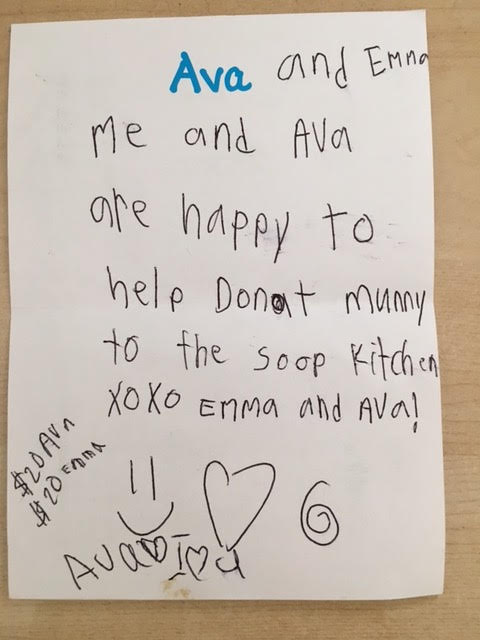 Ava and Emma
Me and AVa
are happy to
help Donat munny
to the soop kitchen
XOXO Emma and AVa!
$20 AVA
$20 Emma
Ava I u